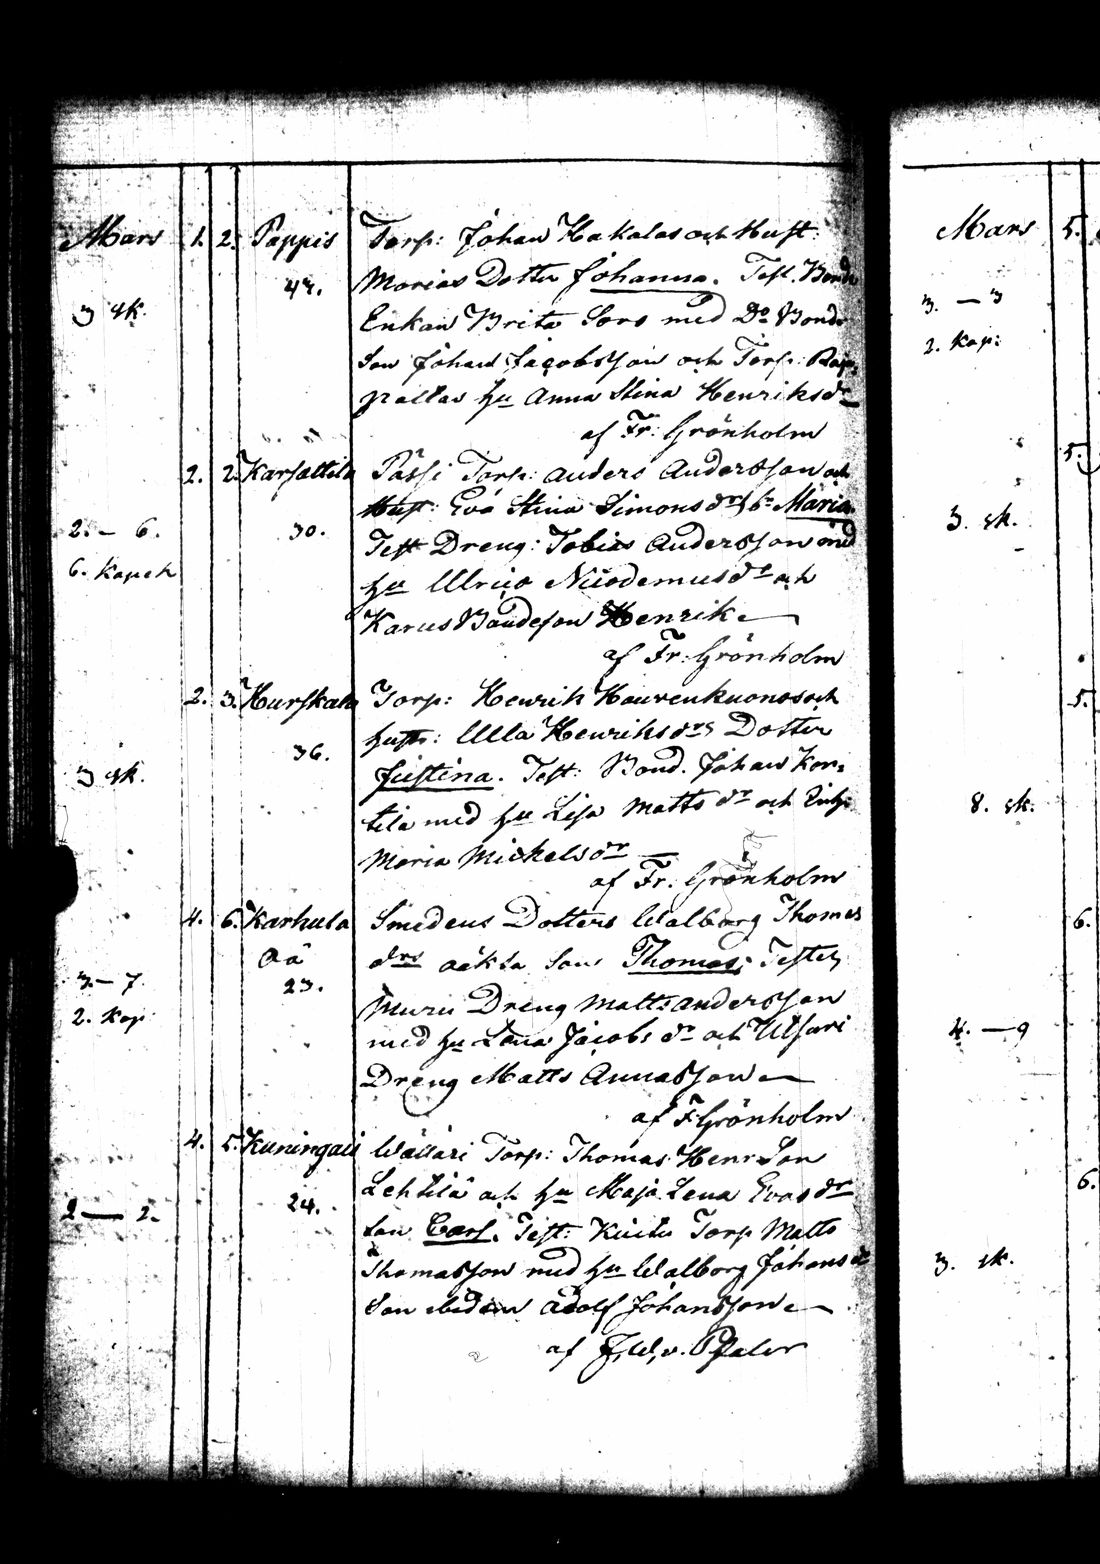 Mars 1. 2. Pappis Torp: Johan Hakalas och Hust:
42. Marias Dotter Johanna. Test. Bonde
3 sk. Enkan Brita Sors med Do Bonde
Son Johan Jacobsson och Torp: Rap-
paltas hu Anna Stina Henriksdr
af Fr: Grönholm
2. 2. Karsattila Passi Torp: Anders Andersson och
Hust: Eva Stina Simonsdrs br Maria.
2. — 6. 30. Test Dreng: Tobias Andersson med
6. Kopek hu Ulrica Nicodemusdr och
Karus Bondeson Henrik
af Fr: Grönholm
2. 3. Hurskala Torp: Henrik Haurenkuonos och
36. hustr: Ulla Henriksdrs Dotter
3 sk. Justina. Test: Bond. Johan Kor-
tila med hu Lisa Mattsdr och Enk:
Maria Mickelsdr
af Fr: Grönholm
4. 6. Karhula Smedens Dotters Walborg Thomas
Oä drs oäkta Son Thomas; Testes
3 — 7. 23.
2. Kop: Muru Dreng Matts Andersson
med hu Lena Jacobsdr och Ulfari
Dreng Matts Annasson
af F: Grönholm
4. 5. Kuningais Wäääri Torp: Thomas Henr Son
24. Lehtilä och hu Maja Lena Evasdr
2 — 2. Son Carl. Test: Torp Matts
Thomasson med hu Walborg Johansdr
Son Adolf Johansson
af F. W. v. Pfaler
Mars 5.
3. — 3
2. Kop:
5.
3. sk.
5.
8. sk.
6.
4. — 9
6.
3. sk.